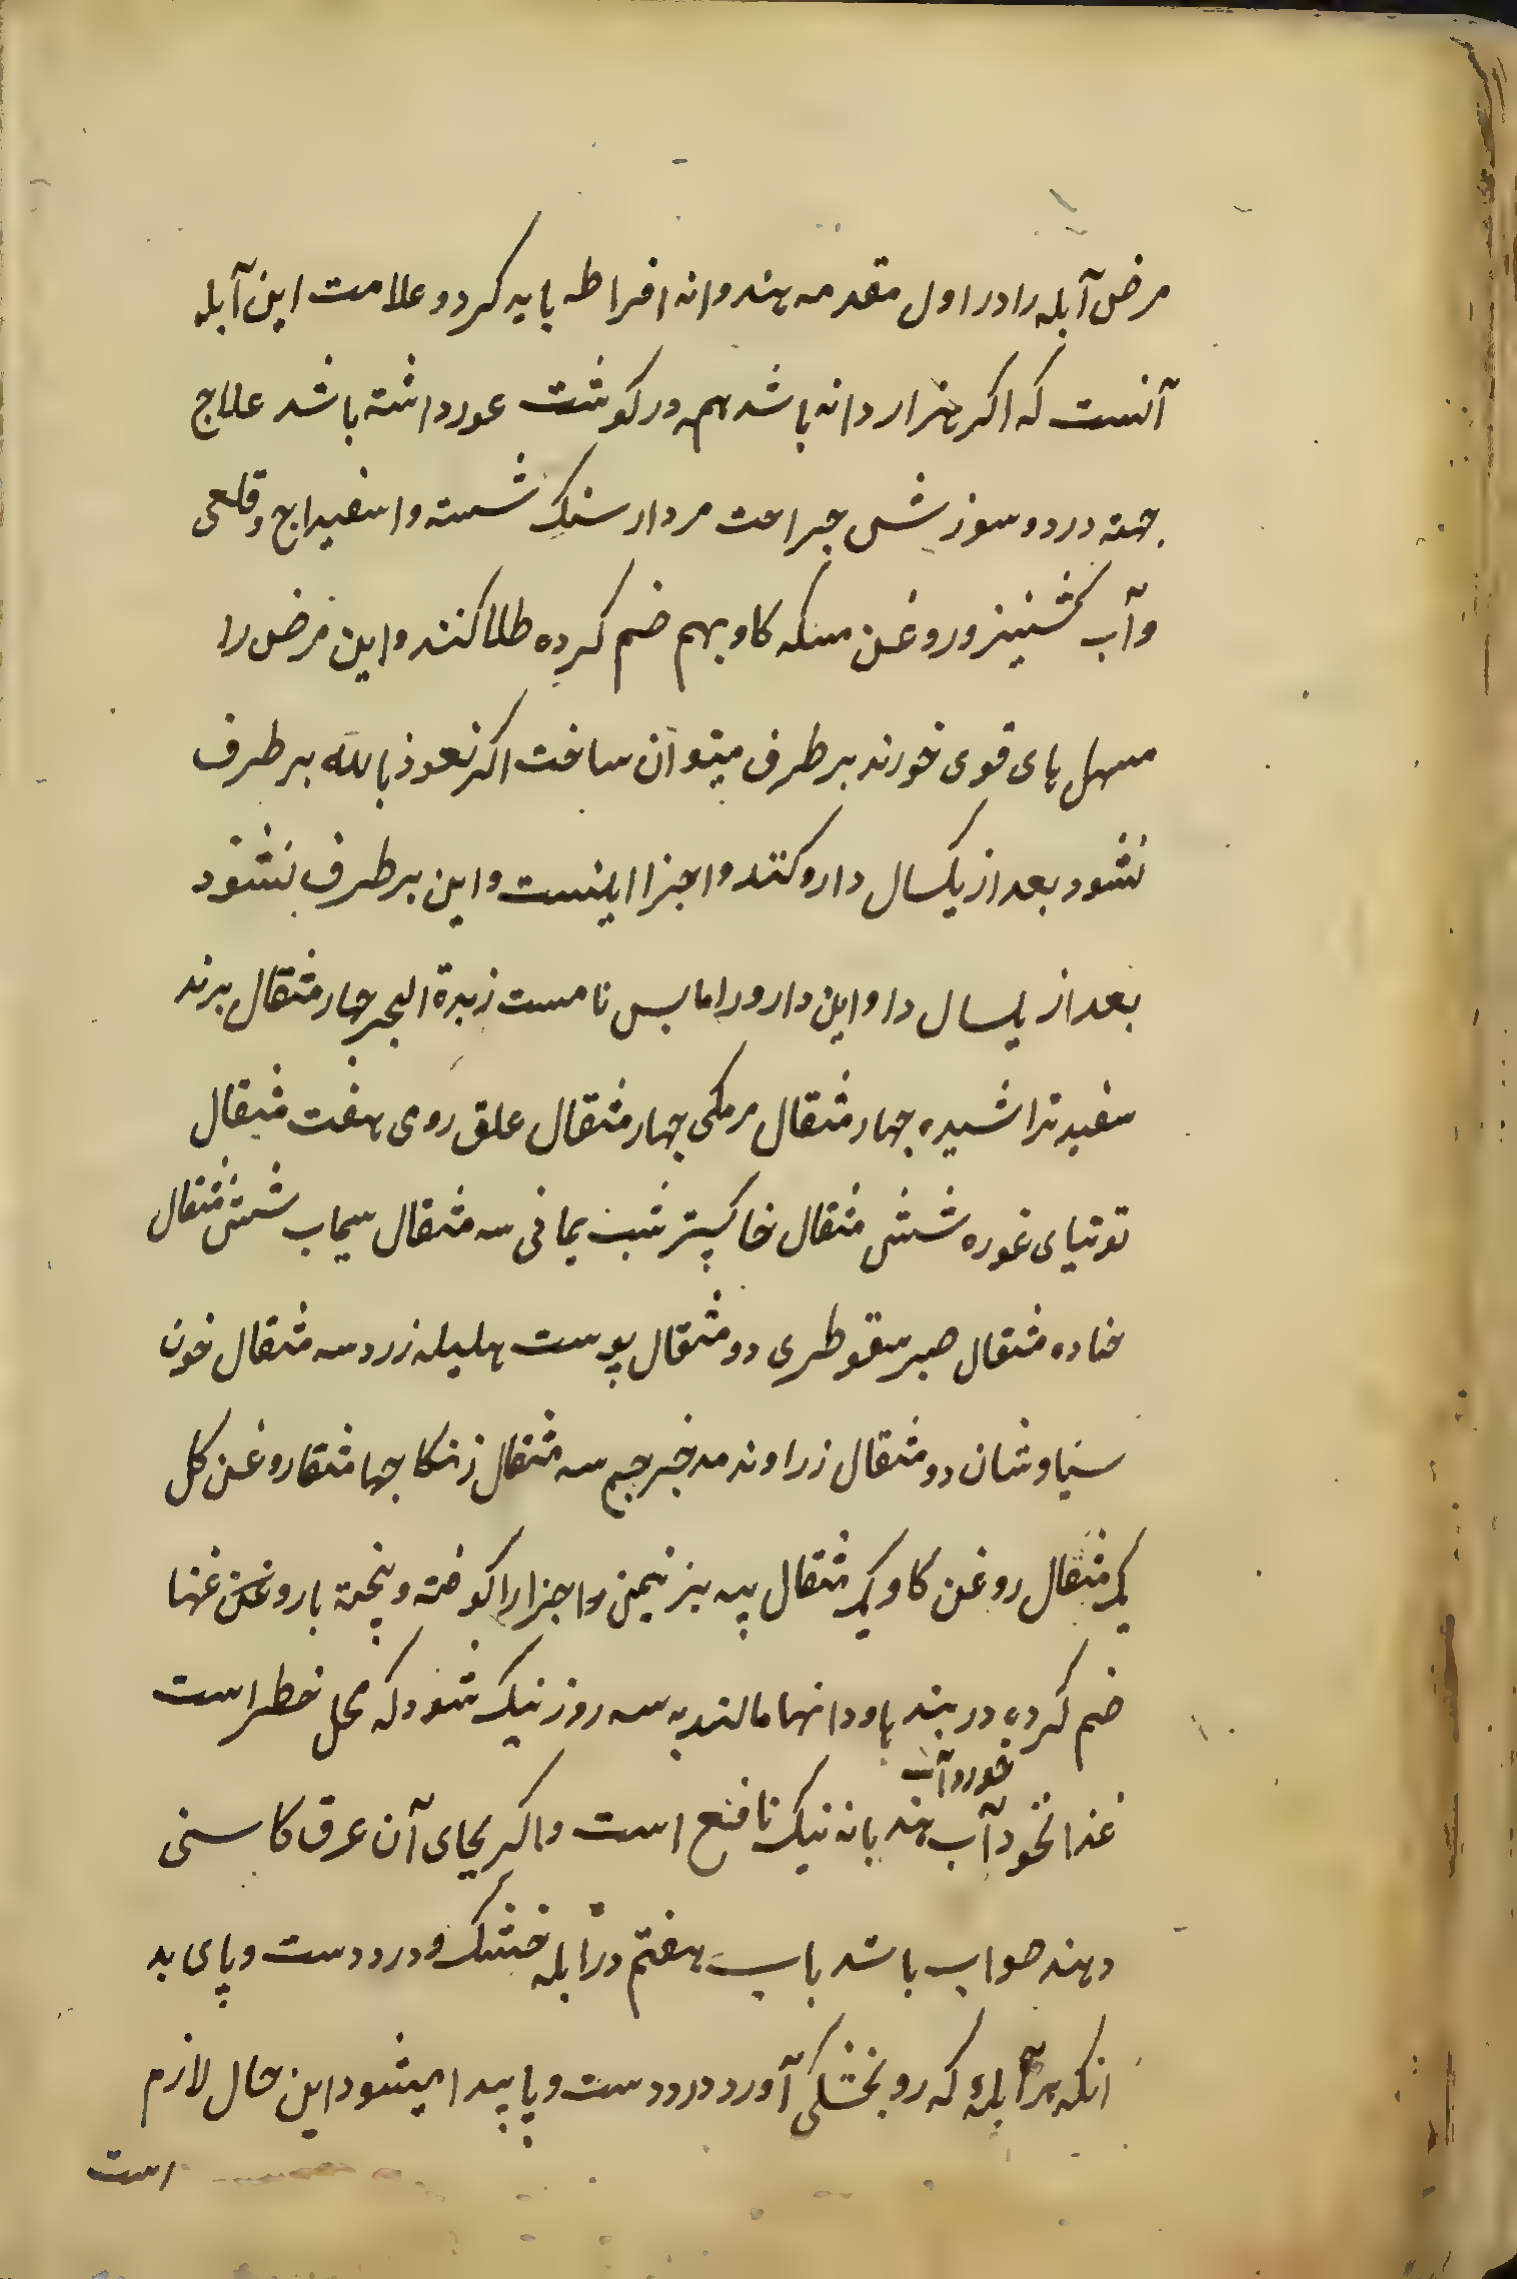 مرض آبله را در اول مقدمه هندوانه افراطه باید کرد و علامت این آبله
آنست که اکر هزار دانه باشد همه در کوشت عور داشته باشد علاج
جهته درد و سوزش جراحت مردار سنک شسته و اسفیداج و قلعی
و آب کشنیز و روغن مسکه کاو بهم ضم کرده طلا کنند و این مرض را
مسهل های قوی خورند برطرف میتوان ساخت اکر نعوذ بالله برطرف
نشود بعد از یکسال دارو کنند و اجزا اینست و این برطرف نشود
بعد از یکسال دا و این دارو را نامست زبدة البحر چهار مثقال برند
سفید تراشیده چهار مثقال مرمکی چهار مثقال علق رومی هفت مثقال
توتیای غوره شش مثقال خاکستر شب یمانی سه مثقال سیماب شش مثقال
حنا ده مثقال صبر سقوطری دو مثقال پوست هلیله زرد سه مثقال خون
سیاوشان دو مثقال زراوند مدخرجم سه مثقال زنکا جها مثقا روغن کل
یک مثقال روغن کاو یک مثقال پیه بز نیمن و اجزا را کوفته و پخته با روغن غنها
ضم کرده در بند ها و دانها مالند به سه روز نیک شود که محل خطر است
غذا نخود آب خورد و آب هندبانه نیک نافع است و اکر بجای آن عرق کاسنی
دهند صواب باشد باب هفتم در آبله خشک و درد دست و پای بد
انکه هر آبلهٔ که رو بخشکی آورد درد دست و پا پیدا میشود این حال لازم
است